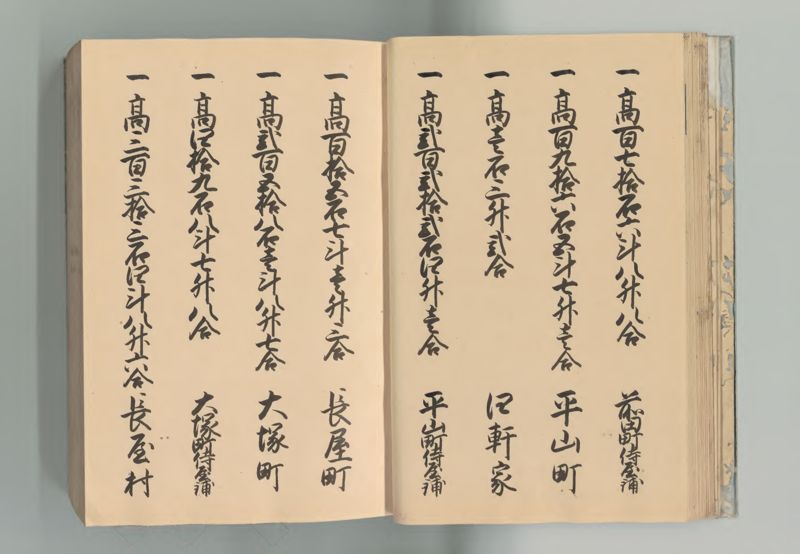 一 高百七拾石六斗八升八合 前町侍屋浦
一 高百九拾六石五斗七升壱合 平山町
一 高壱石三升弐合 四軒家
一 高弐百弐拾弐石四升壱合 平山町侍屋浦
一 高百拾五石七斗壱升三合 長屋町
一 高弐百五拾八石壱斗八升七合 大塚町
一 高四拾九石八斗七升八合 大塚町侍屋浦
一 高三百三拾三石四斗八升六合 長屋村